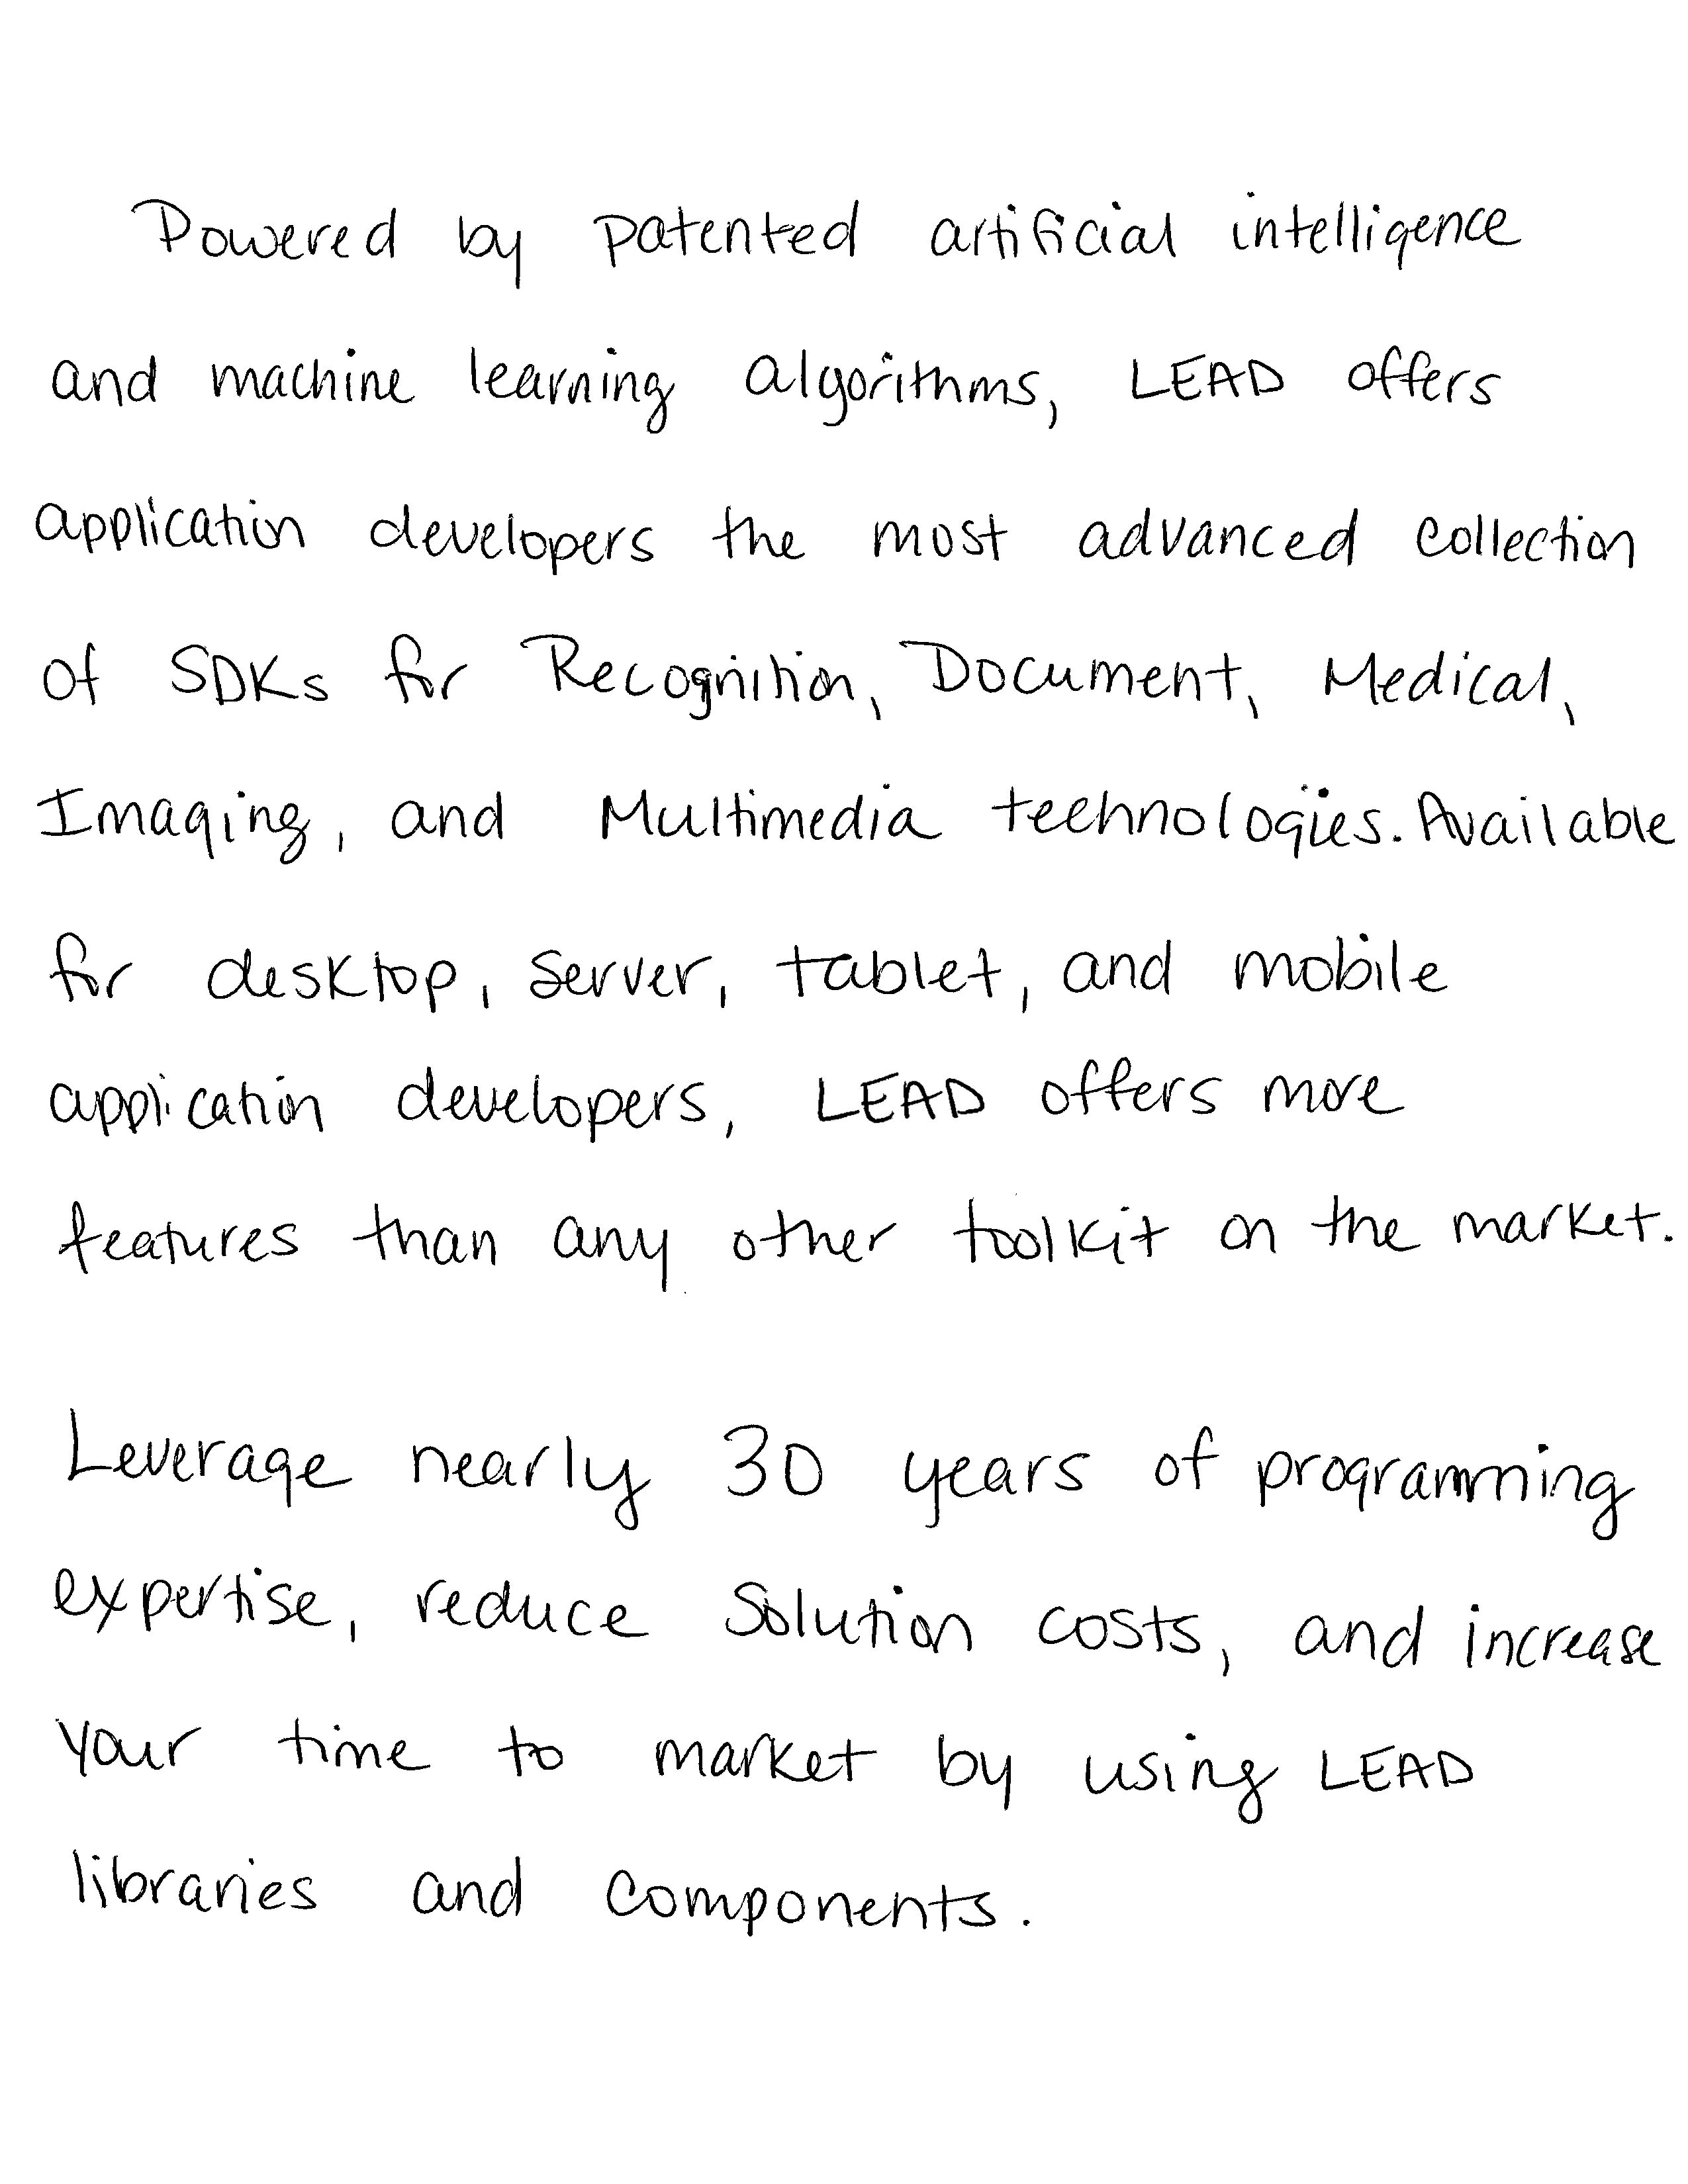 Powered by patented artificial intelligence
and machine learning algorithms, LEAD offers
application developers the most advanced collection
of SDKs for Recognition, Document, Medical,
Imaging, and Multimedia technologies. Available
for desktop, server, tablet, and mobile
application developers, LEAD offers more
features than any other toolkit on the market.
Leverage nearly 30 years of programming
expertise, reduce solution costs, and increase
your time to market by using LEAD
libraries and components.